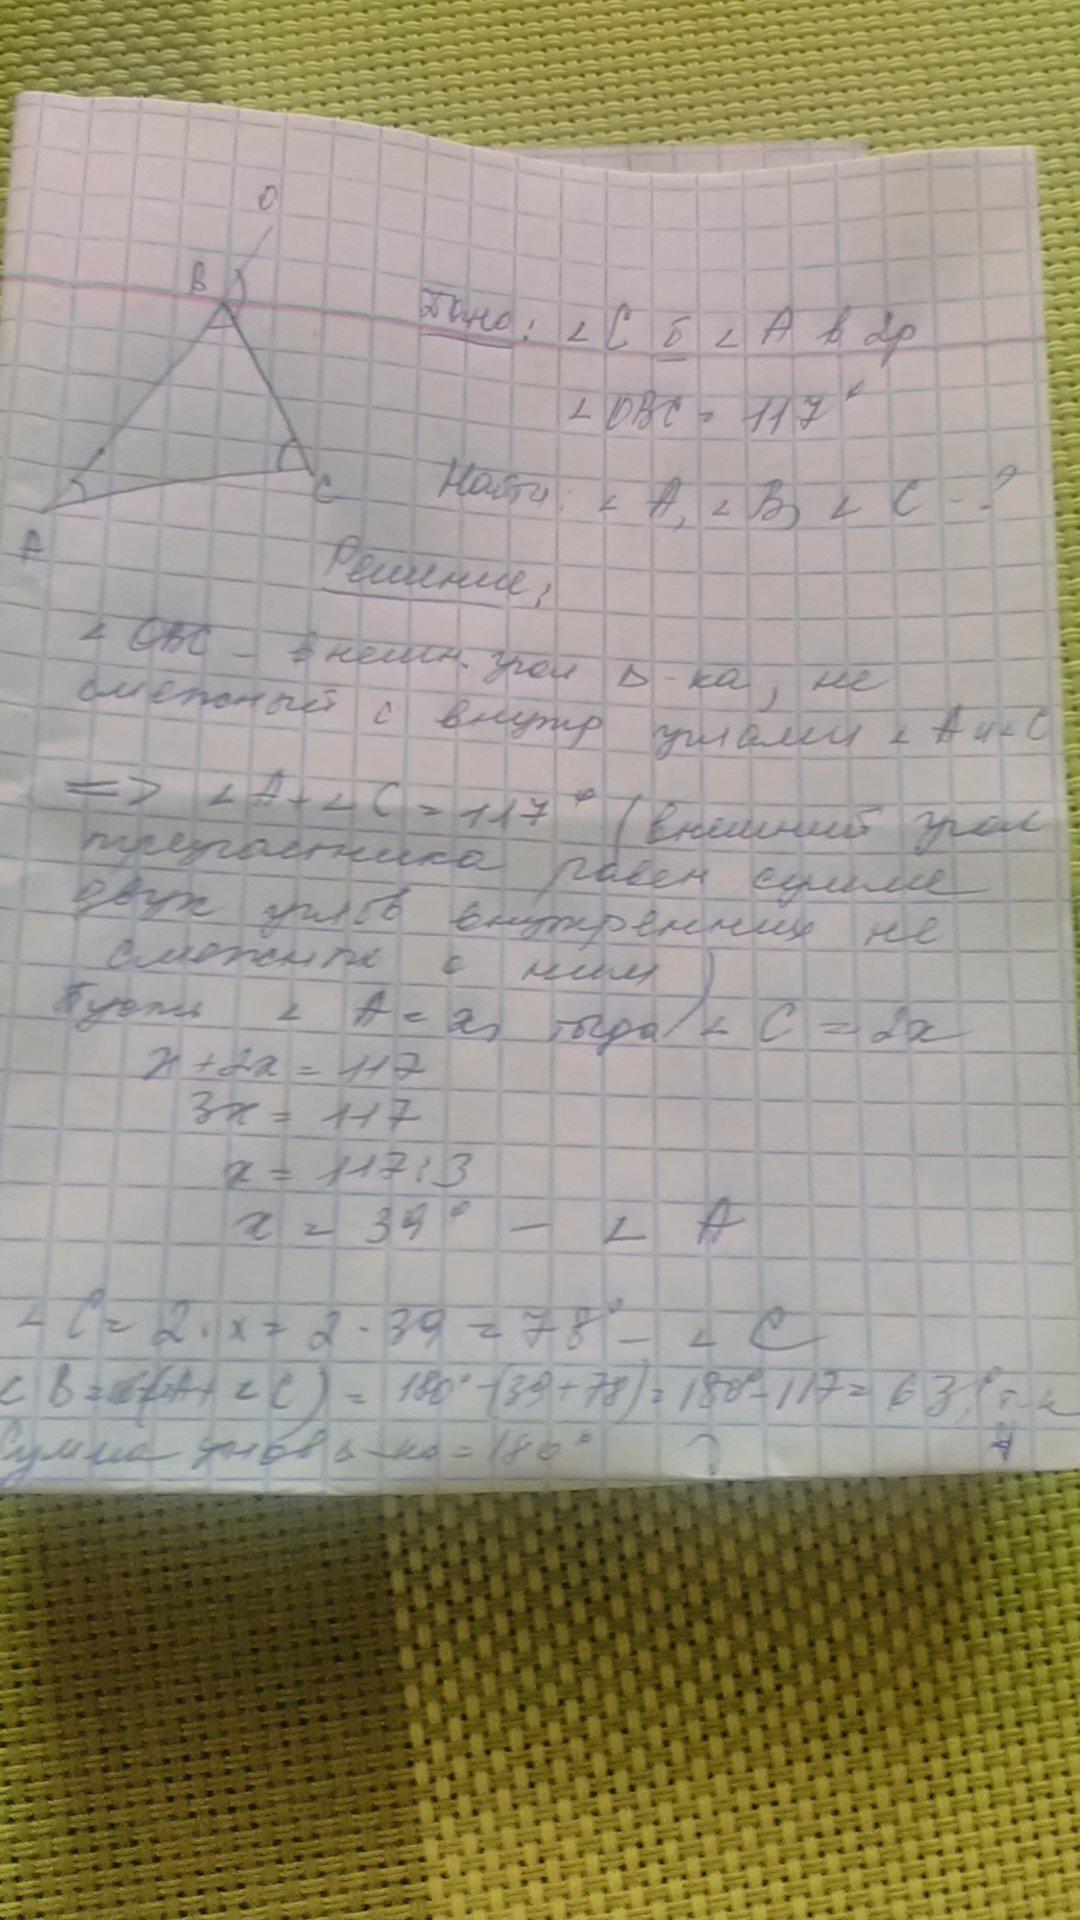 O
B
Дано: ∠C б ∠A в 2р
∠OBC = 117°
C
Найти: ∠A, ∠B, ∠C - ?
A
Решение:
∠OBC - внешн. угол Δ-ка, не
смежный с внутр углами ∠A и ∠C
=> ∠A + ∠C = 117° (внешний угол
треугольника равен сумме
двух углов внутренних не
смежных с ним)
Пусть ∠A = x, тогда ∠C = 2x
x + 2x = 117
3x = 117
x = 117:3
x = 39° - ∠A
∠C = 2·x = 2·39 = 78° - ∠C
∠B = (∠A + ∠C) = 180° - (39 + 78) = 180° - 117 = 63° т-к
Сумма углов Δ-ка = 180°